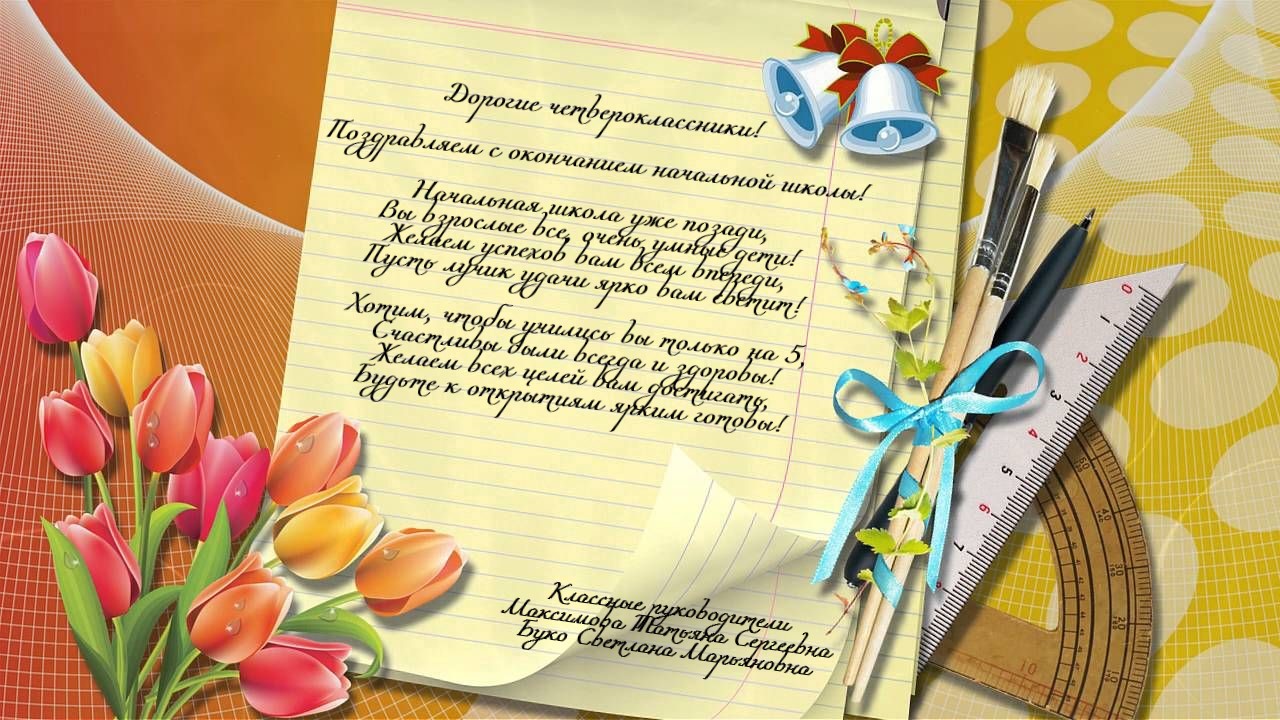 Дорогие четвероклассники!
Поздравляем с окончанием начальной школы!
Начальная школа уже позади,
Вы взрослые все, очень умные дети!
Желаем успехов вам всем впереди,
Пусть лучик удачи ярко вам светит!
Хотим, чтобы учились вы только на 5,
Счастливы были всегда и здоровы!
Желаем всех целей вам достигать,
Будьте к открытиям ярким готовы!
Классные руководители
Максимова Татьяна Сергеевна
Буко Светлана Марьяновна
0
1
2
3
4
5
6
7
50
40
30
20
10
10